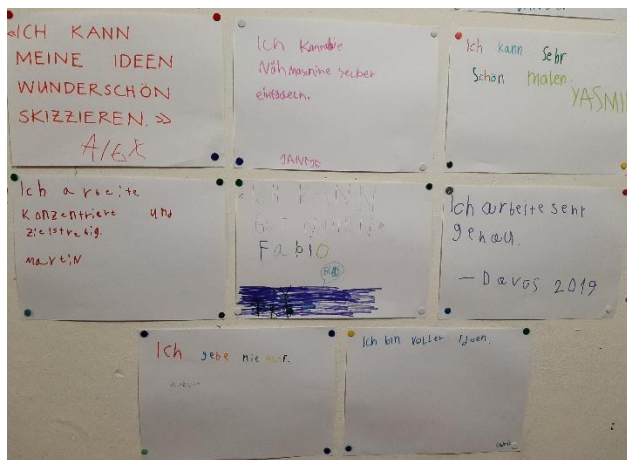 «ICH KANN
MEINE IDEEN
WUNDERSCHÖN
SKIZZIEREN.»
Alex
Ich kann die
Nähmaschine selber
einfädeln.
Ich kann sehr
schön malen.
YASMI
Ich arbeite
Konzentriert und
zielstrebig.
Martin
«ICH KANN
Fabio
Ich arbeite sehr
genau.
— Davos 2019
Ich gebe nie auf.
Ich bin voller Ideen.